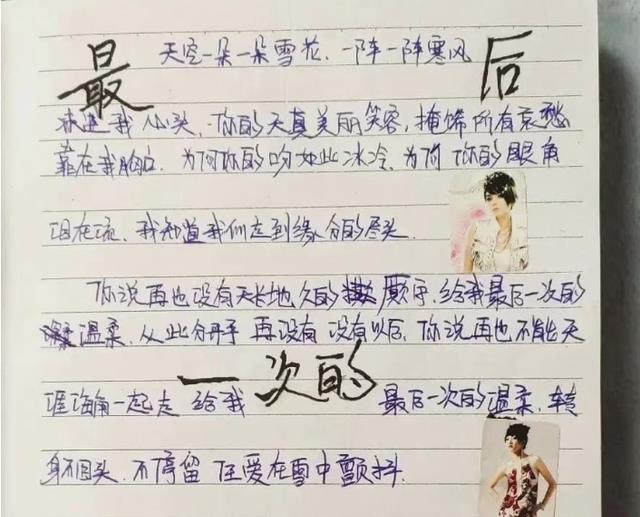 最 后
天空一朵一朵雪花.一阵一阵寒风
冰进我心头,你的天真美丽笑容,掩饰所有哀愁
靠在我胸口.为何你的吻如此冰冷.为何你的眼角
泪在流.我知道我们走到缘分的尽头.
你说再也没有天长地久的 厮守.给我最后一次的
温柔.从此分开乎再没有没有以后.你说再也不能天
涯海角一起走 给我
一次的
最后一次的温柔.转
身不回头.不停留 任爱在雪中颤抖.